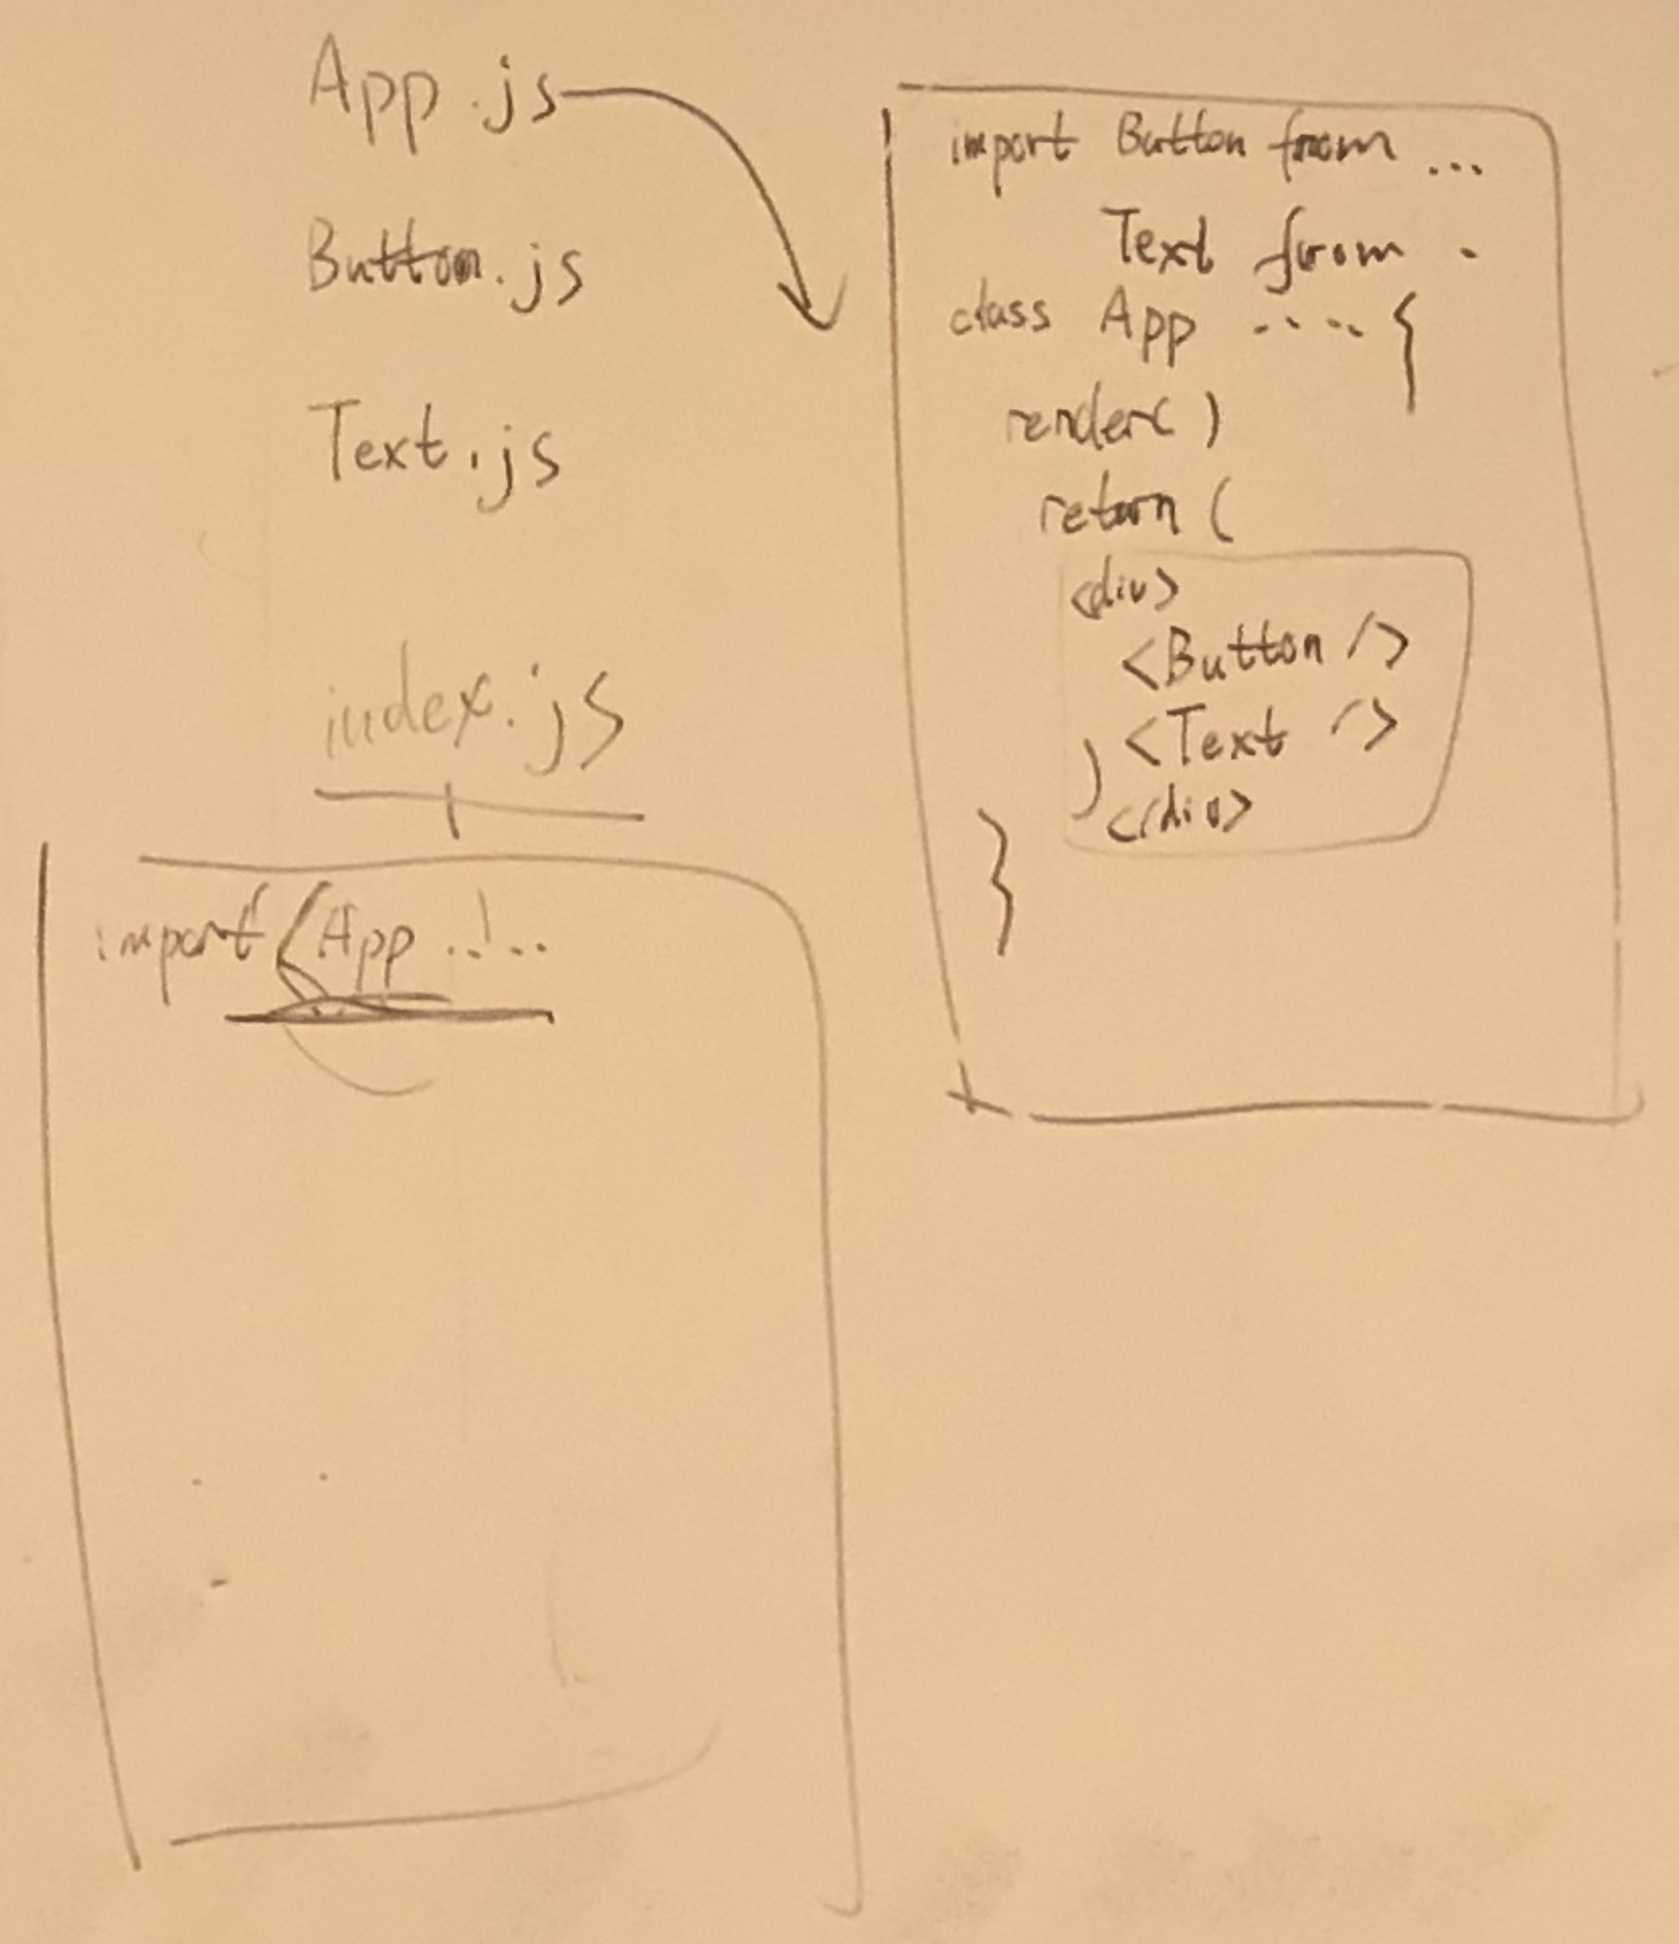 App.js
Button.js
Text.js
index.js
import App .....
import Button from ...
Text from .
class App ..... {
render( )
return (
<div>
<Button />
<Text />
)
</div>
}